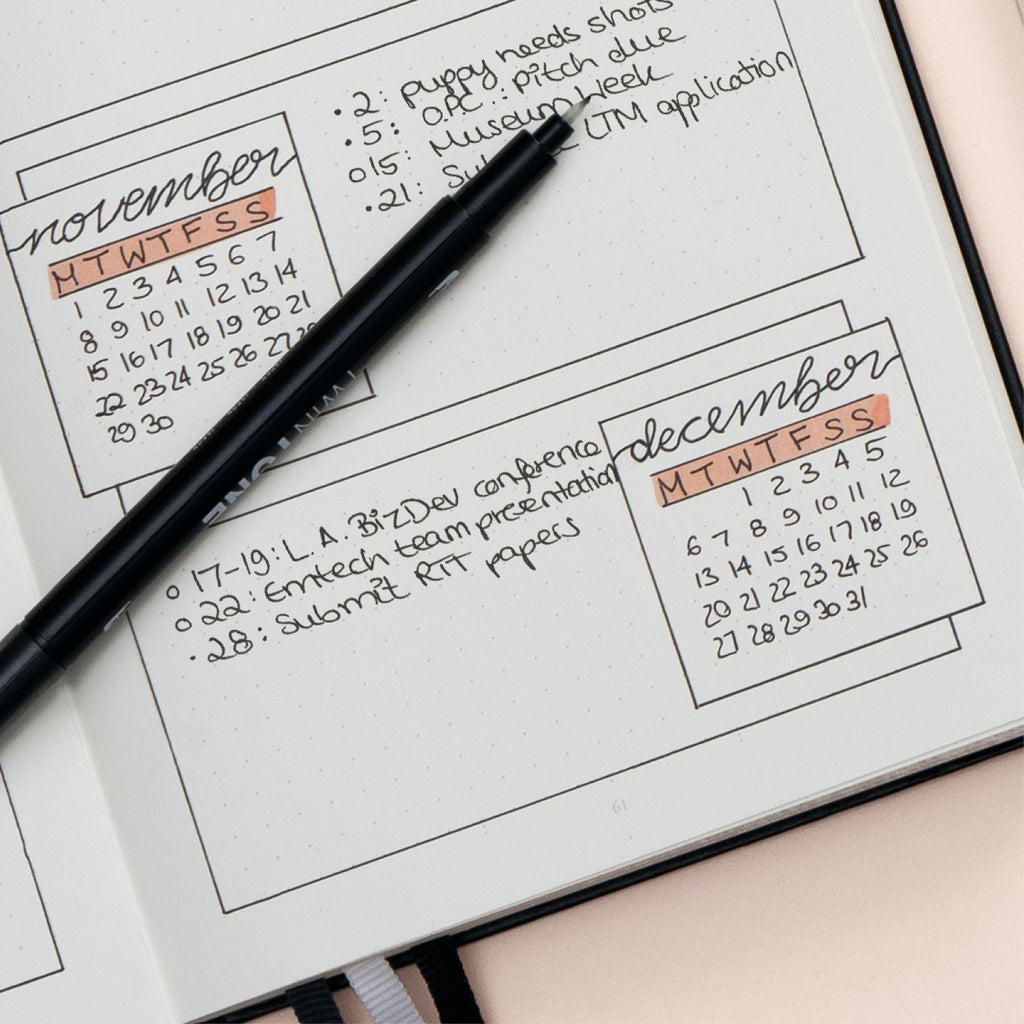 • 2: puppy needs shots
• 5: O.P.C.: pitch due
o 15: Museum Week
• 21: LTM application
november
M T W T F S S
1 2 3 4 5 6 7
8 9 10 11 12 13 14
15 16 17 18 19 20 21
22 23 24 25 26 27 28
29 30
december
M T W T F S S
1 2 3 4 5
6 7 8 9 10 11 12
13 14 15 16 17 18 19
20 21 22 23 24 25 26
27 28 29 30 31
o 17-19: L.A. BizDev conference
o 22: Emtech team presentation
• 28: Submit RIT papers
61